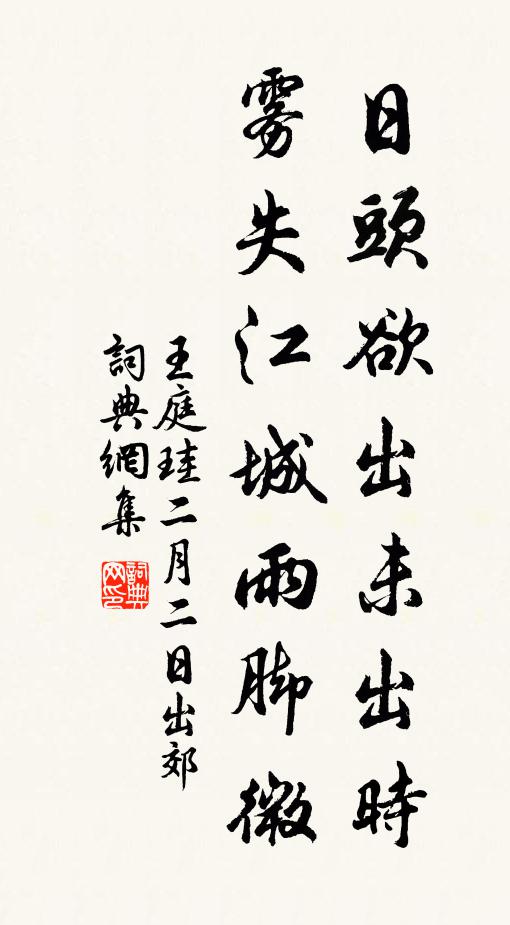 日頭欲出未出時
霧失江城雨脚微
王庭珪二月二日出郊
詞典網集
詞典網印